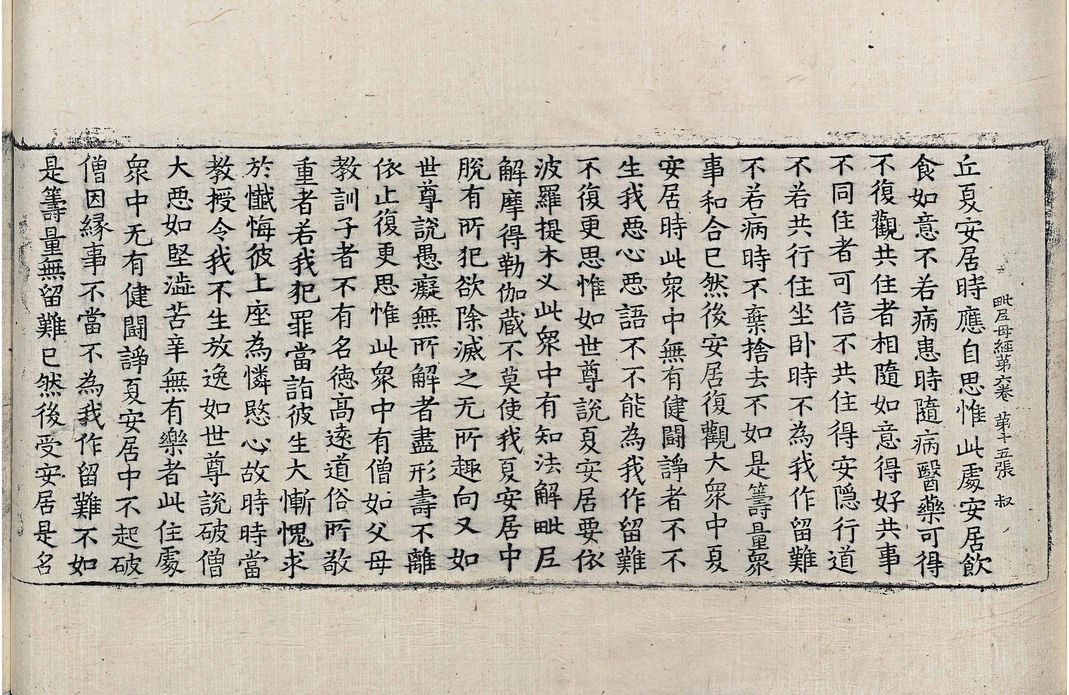 毗尼母經第六卷 第十五張 叔
丘夏安居時應自思惟此處安居飲
食如意不若病患時隨病醫藥可得
不復觀共住者相隨如意得好共事
不同住者可信不共住得安隱行道
不若共行住坐卧時不為我作留難
不若病時不棄捨去不如是籌量衆
事和合已然後安居復觀大衆中夏
安居時此衆中無有健鬪諍者不不
生我惡心惡語不不能為我作留難
不復更思惟如世尊說夏安居要依
波羅提木义此衆中有知法解毗尼
解摩得勒伽藏不莫使我夏安居中
脫有所犯欲除滅之无所趣向又如
世尊說愚癡無所解者盡形壽不離
依止復更思惟此衆中有僧如父母
教訓子者不有名德高遠道俗所敬
重者若我犯罪當詣彼生大慚愧求
於懺悔彼上座為憐愍心故時時當
教授令我不生放逸如世尊說破僧
大惡如堅澁苦辛無有樂者此住處
衆中无有健鬪諍夏安居中不起破
僧因縁事不當不為我作留難不如
是籌量無留難已然後受安居是名